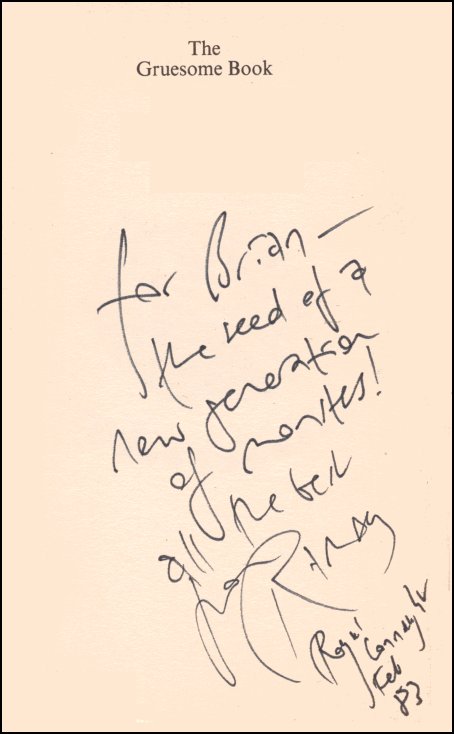 The
Gruesome Book
for Brian —
the seed of a
new generation
of
all the best
Ramsey
Royal
Connaught
Feb
83